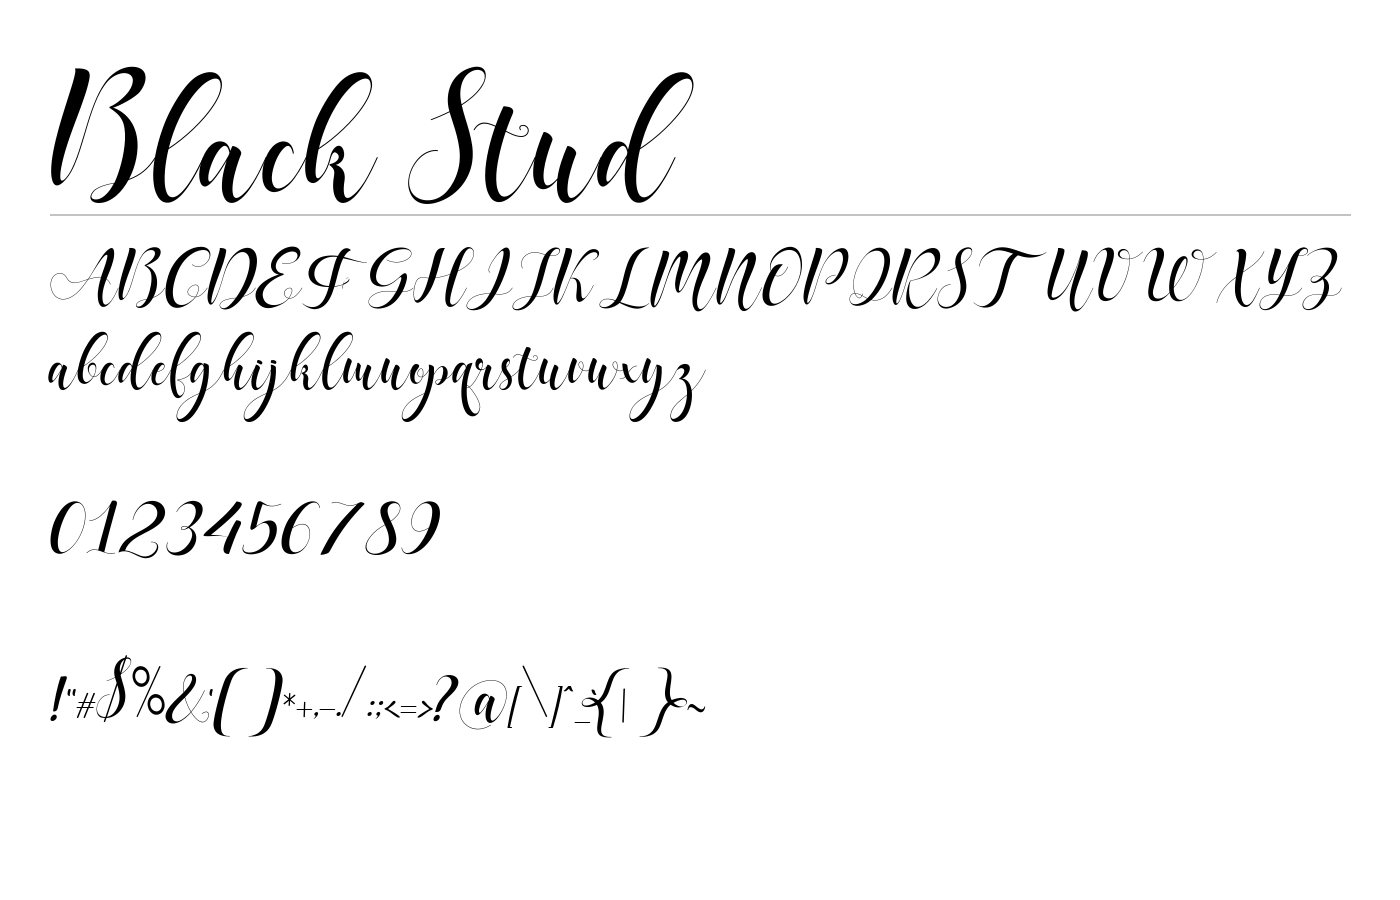 Black Stud
ABCDEFGHIJKLMNOPQRSTUVWXYZ
abcdefghijklmnopqrstuvwxyz
0123456789
!"#$%&'()*+,-./:;<=>?@[\]^_`{|}~